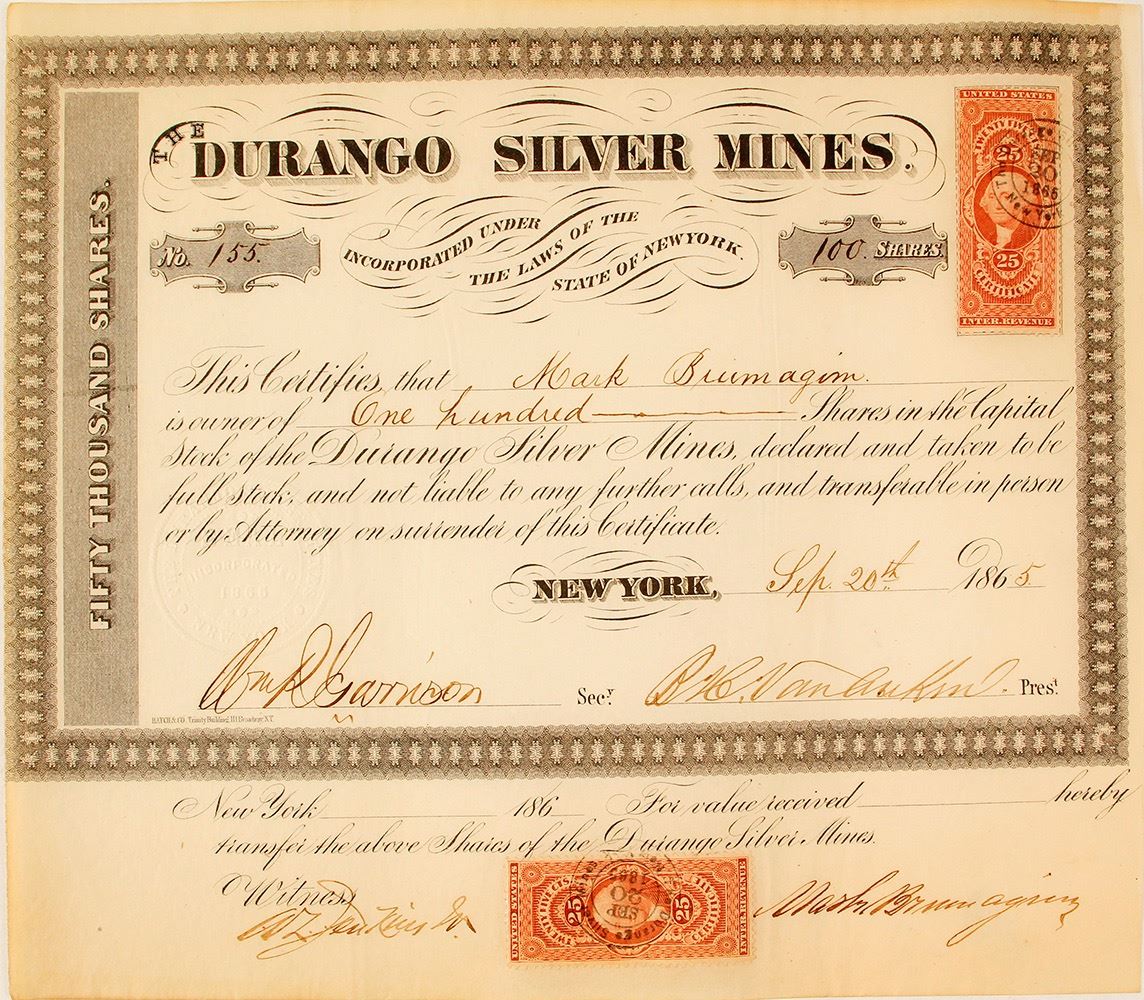 THE
DURANGO SILVER MINES.
No. 155.
INCORPORATED UNDER
THE LAWS OF THE
STATE OF NEW YORK.
100. SHARES.
UNITED STATES
TWENTY FIVE CTS.
25
SEP
20
1865
25
CERTIFICATE
INTER. REVENUE
FIFTY THOUSAND SHARES.
This Certifies, that Mark Brumagim.
is owner of One hundred Shares in the Capital
Stock of the Durango Silver Mines, declared and taken to be
full Stock, and not liable to any further calls, and transferable in person
or by Attorney on surrender of this Certificate.
NEW YORK, Sep. 20th 1865
Wm R Garrison Secy.
B.K. Van Auken. Prest.
HATCH & CO. Trinity Building, 111 Broadway, N.Y.
New York 186 For value received hereby
transfer the above Shares of the Durango Silver Mines.
Witness
Mark Brumagim
UNITED STATES
TWENTY FIVE CTS.
25
1865
20
SEP
25
CERTIFICATE
INTER. REVENUE